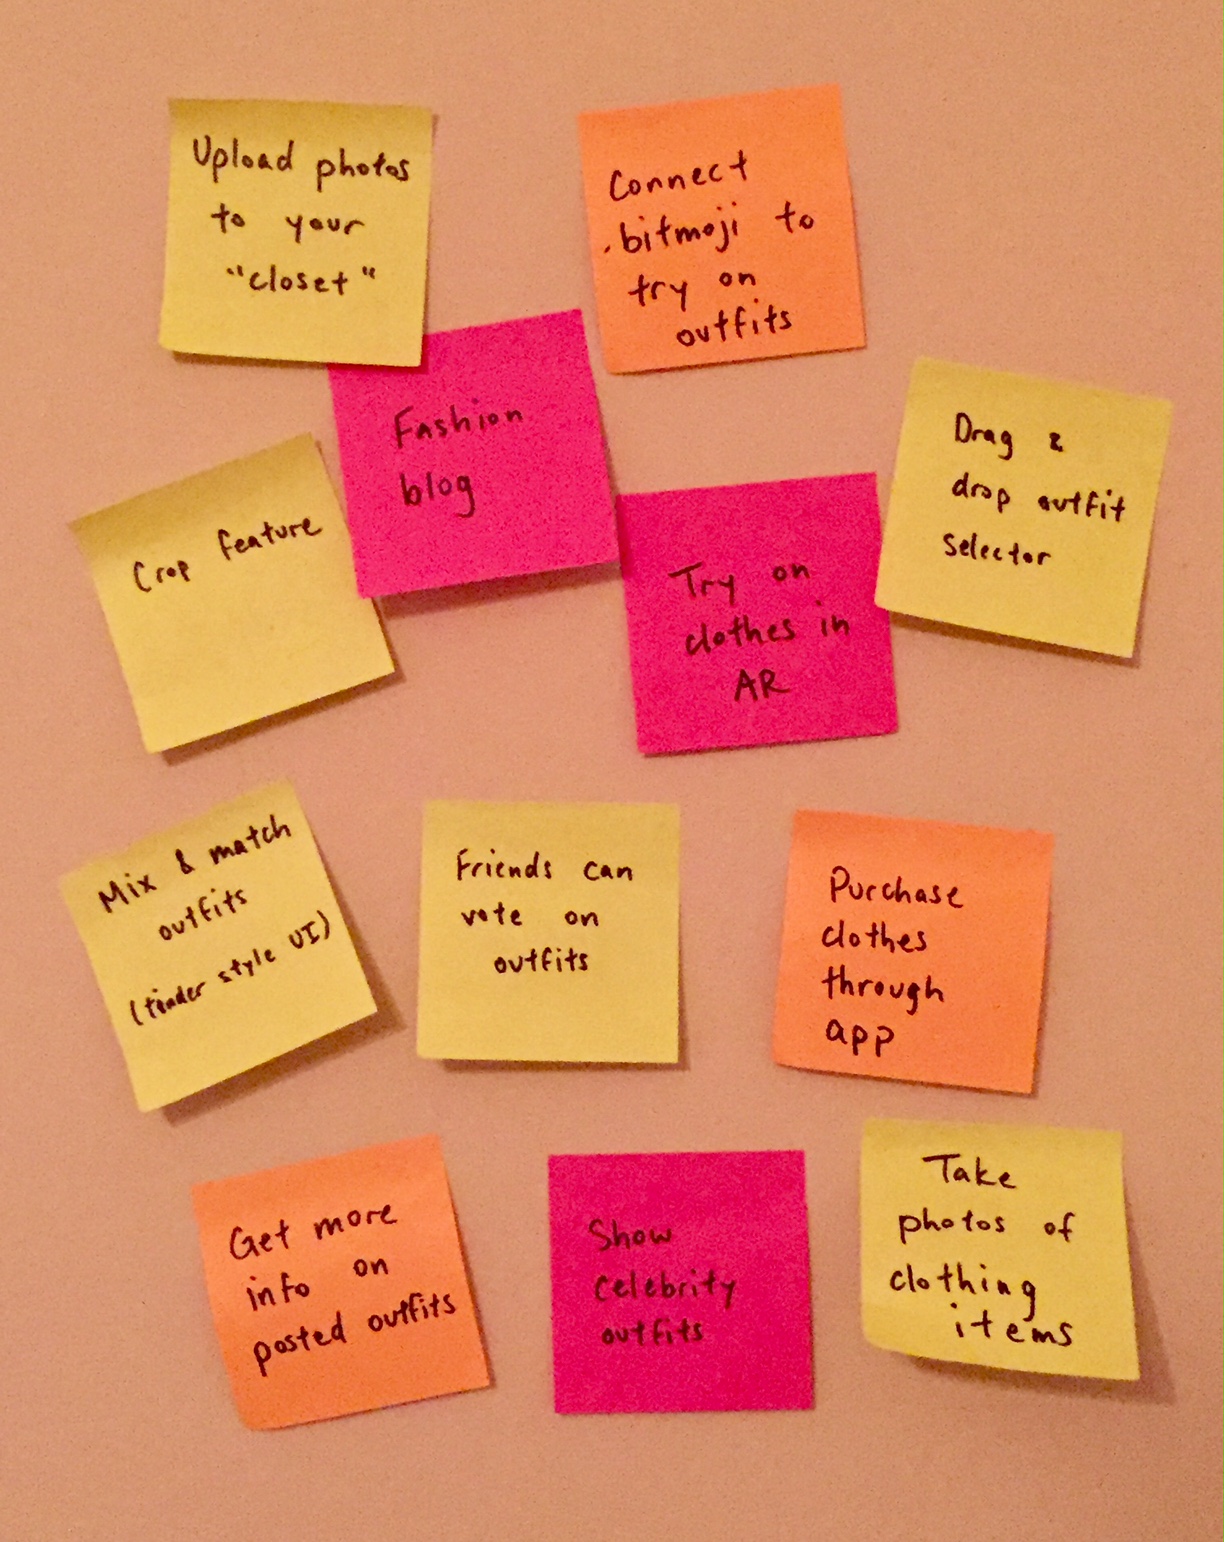 Upload photos
to your
"closet"
Connect
bitmoji to
try on
outfits
Fashion
blog
Drag &
drop outfit
selector
Crop feature
Try on
clothes in
AR
Mix & match
outfits
(tinder style UI)
Friends can
vote on
outfits
Purchase
clothes
through
app
Get more
info on
posted outfits
Show
celebrity
outfits
Take
photos of
clothing
items